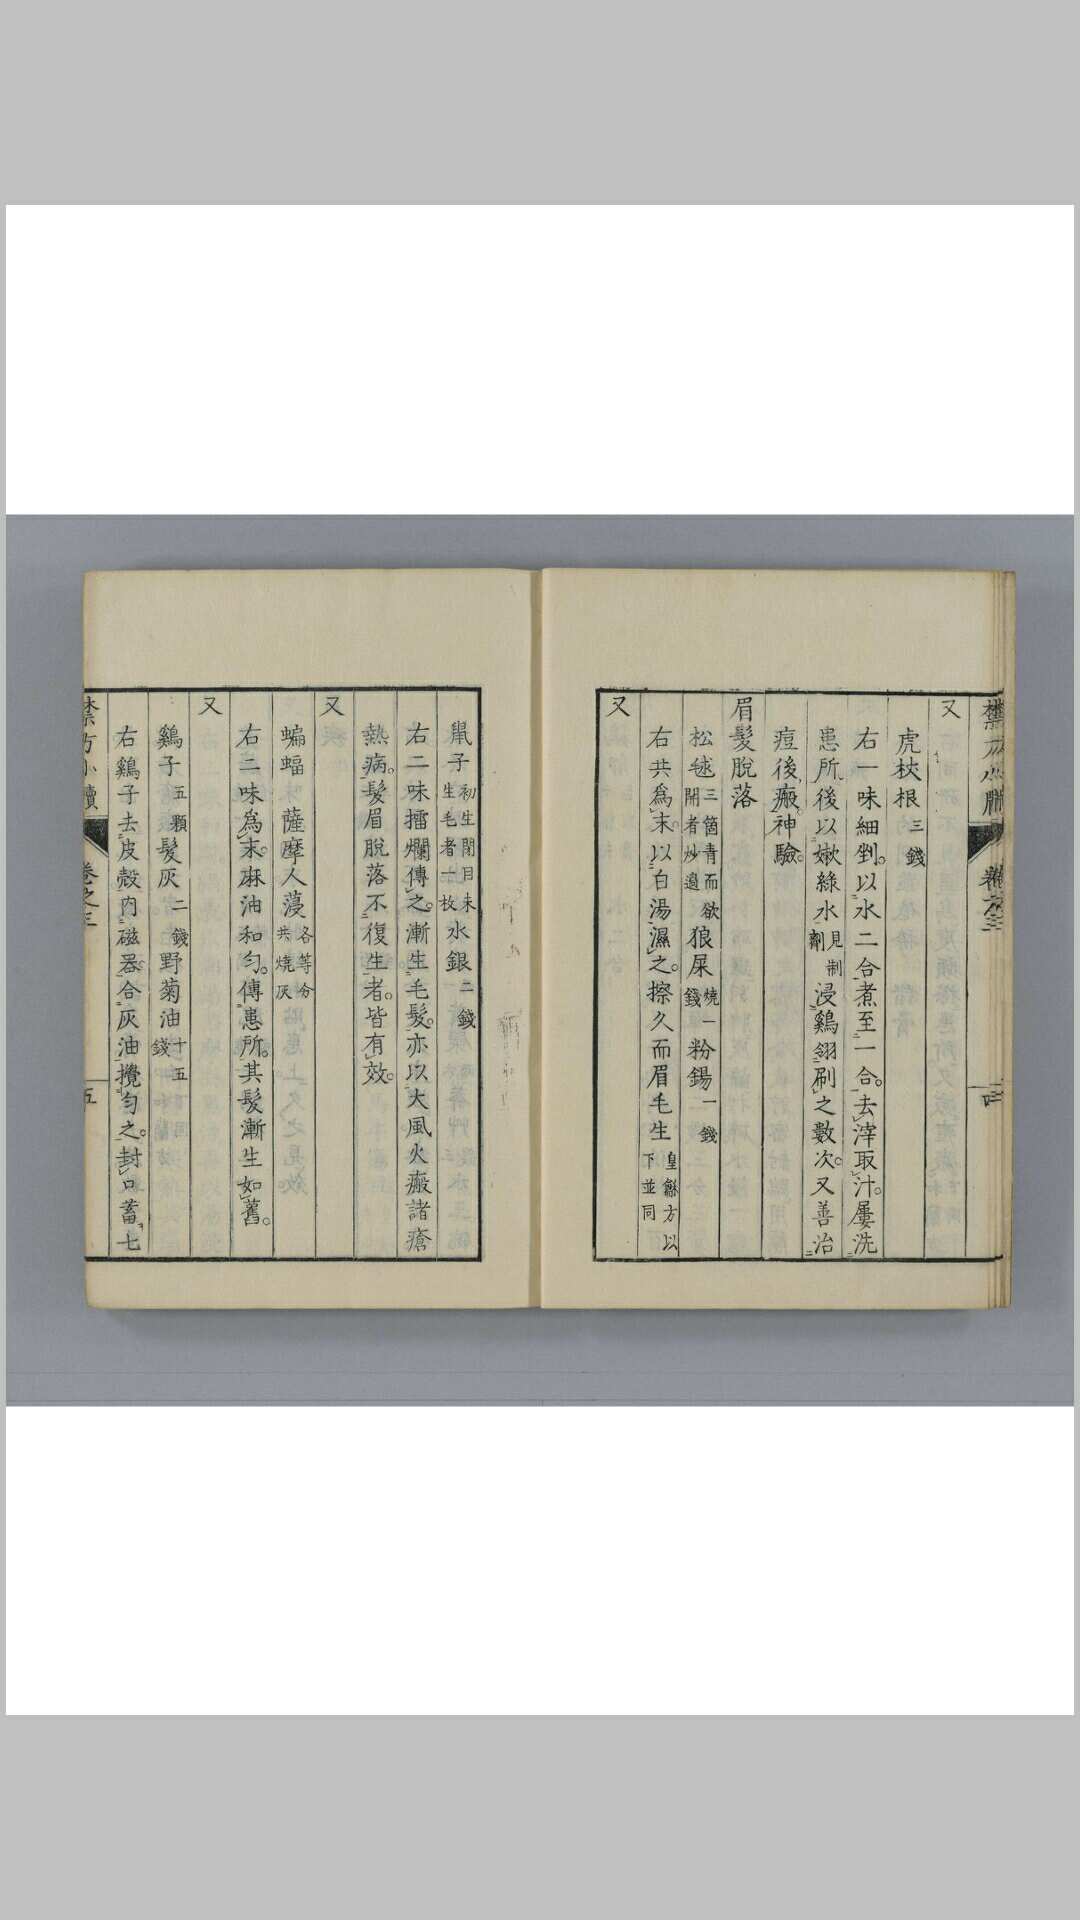 又
虎杖根三錢
右一味細剉。以水二合煮至一合。去滓取汁。屢洗
患所後以嫩綠水見制劑浸鷄翎刷之數次。又善治
痘後瘢神驗。
眉髮脫落
松毬三箇青而欲開者炒過狼屎燒一錢粉錫一錢
右共爲末。以白湯濕之。擦久而眉毛生皇龢方以下並同
又
鼠子初生閉目未生毛者十枚水銀二錢
右二味擂爛傅之。漸生毛髮。亦以大風火瘢諸瘡
熱病。髮眉脫落不復生者。皆有效。
又
蝙蝠薩摩人蔆各等分共燒灰
右二味爲末。麻油和勻。傅患所。其髮漸生如舊。
又
鷄子五顆髮灰二錢野菊油十五錢
右鷄子去皮殼肉磁器合灰油攪勻之。封口蓄七
禁方小牘
卷之三
五